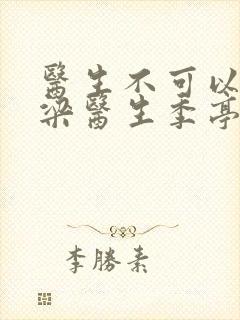 醫生不可以
梁醫生季亭
李勝素